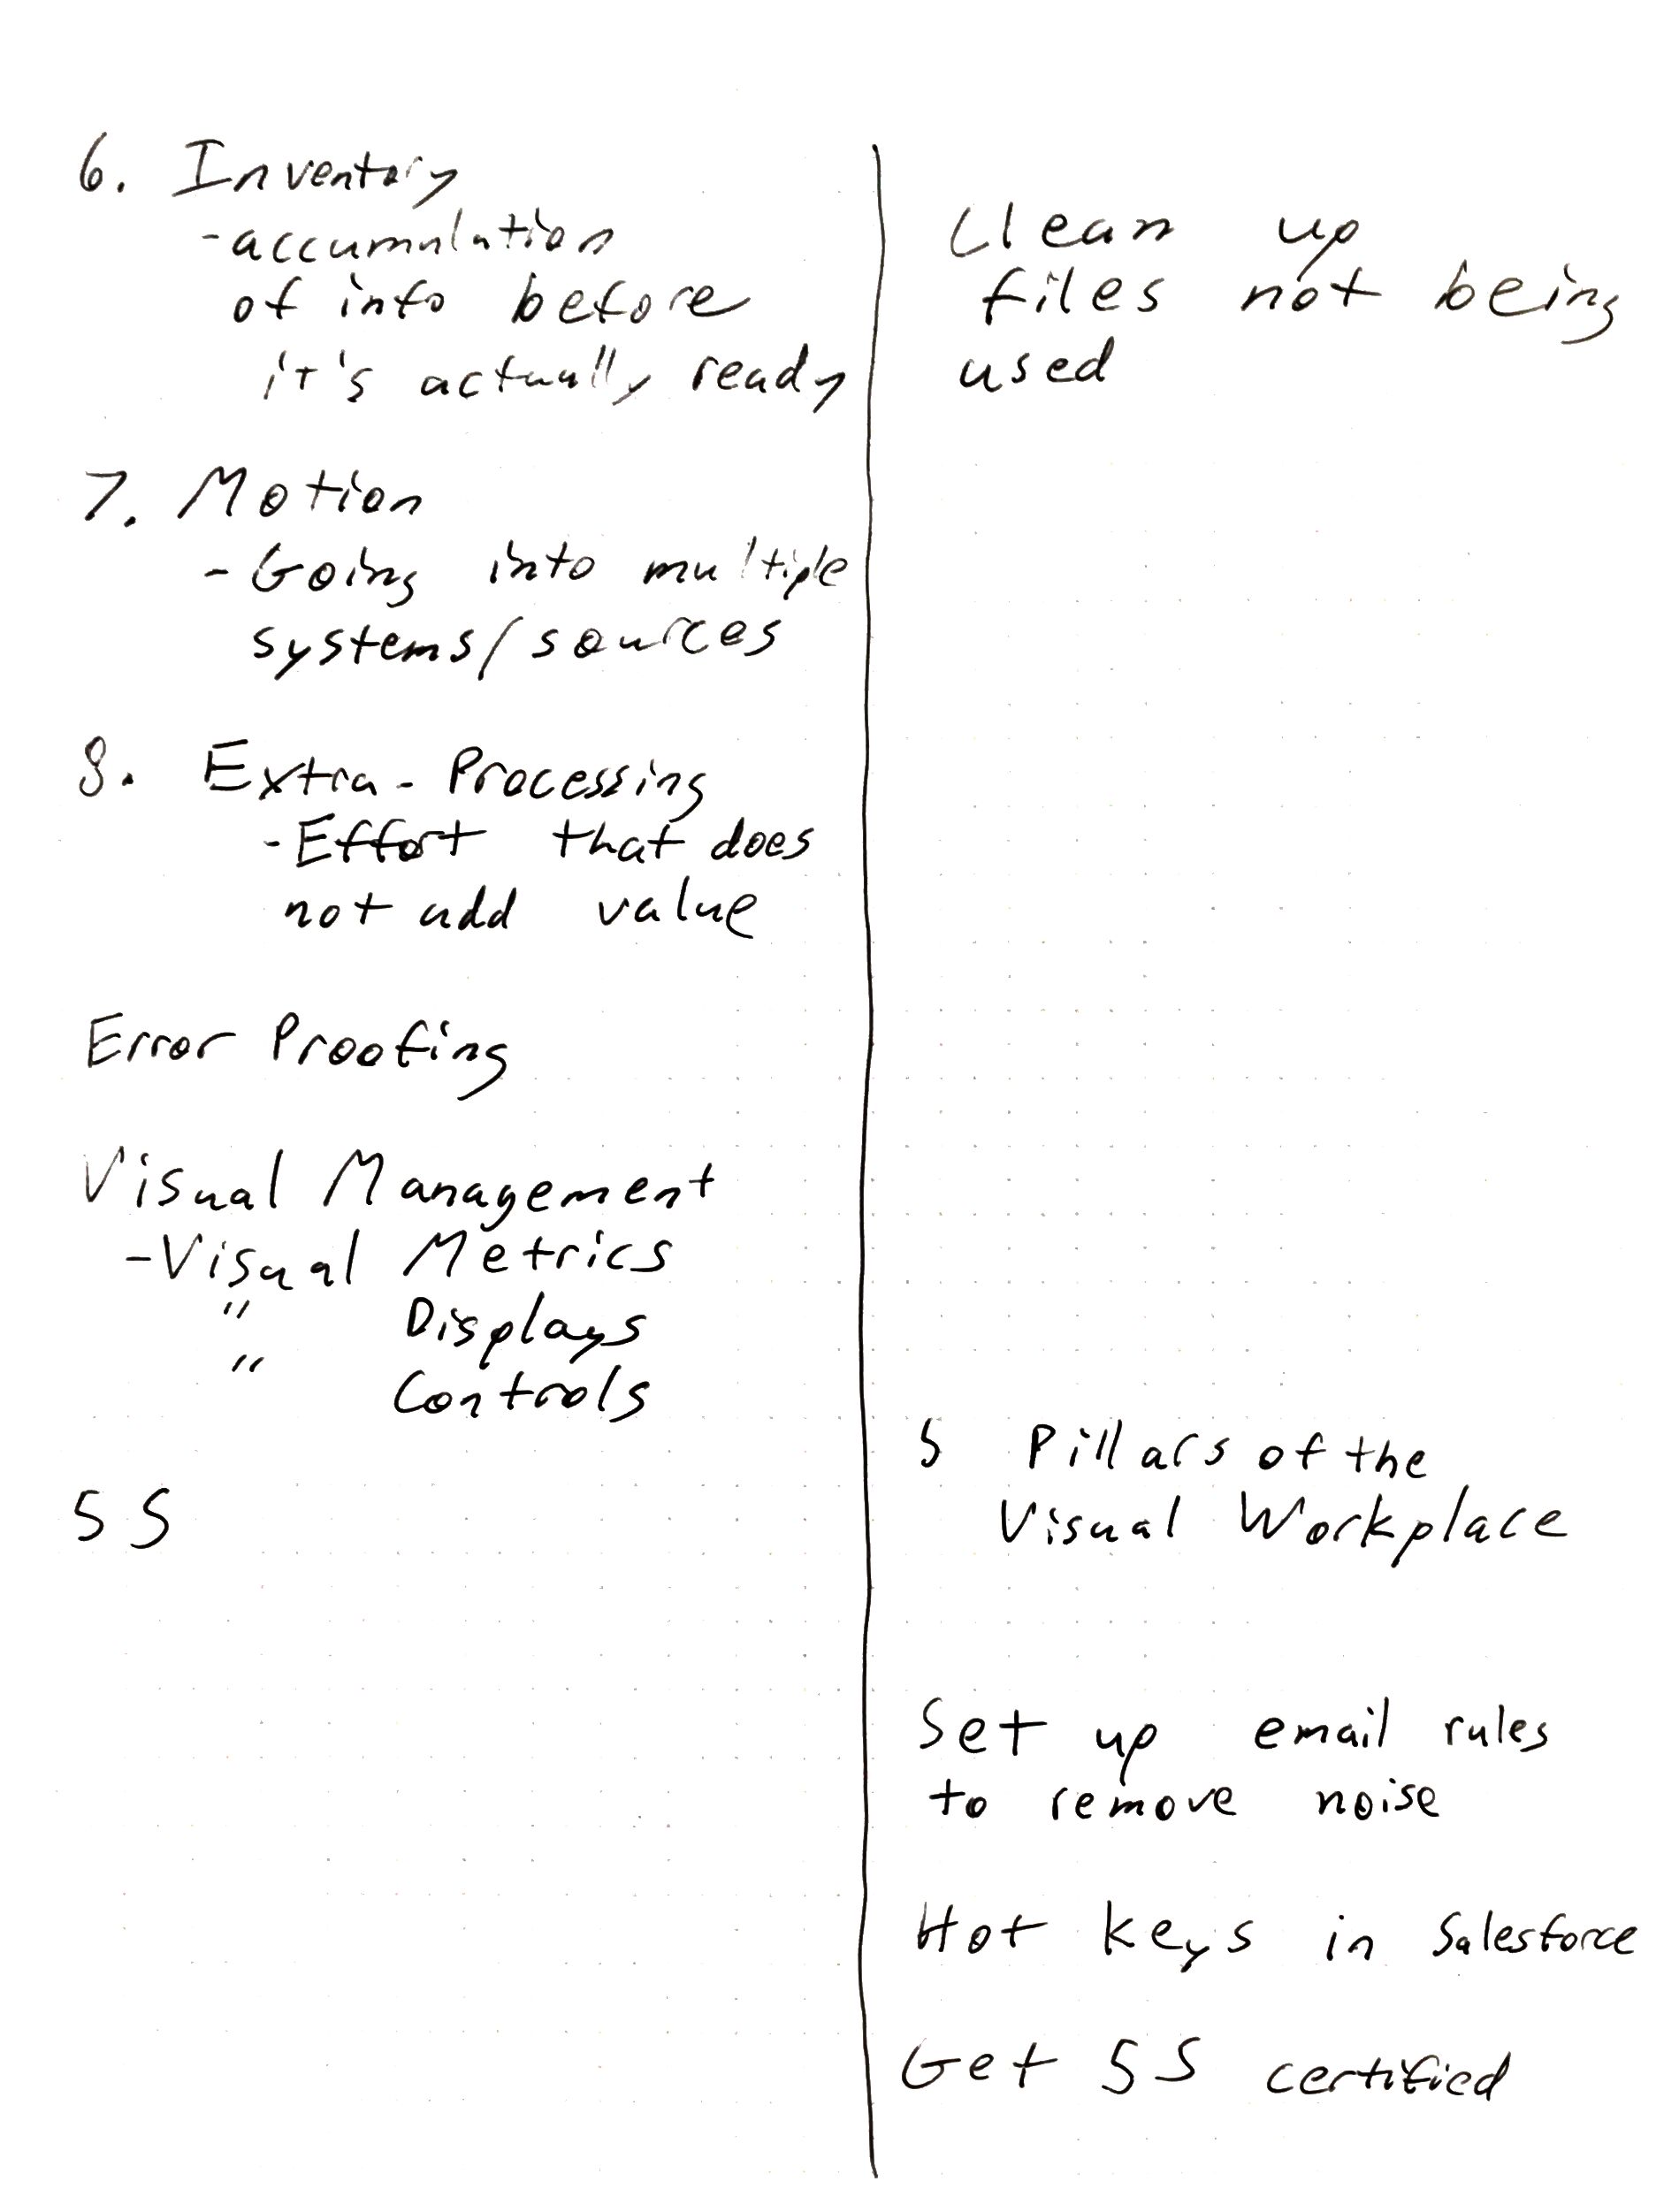 6. Inventory
-accumulation
of info before
it's actually ready
7. Motion
- Going into multiple
systems/sources
8. Extra-Processing
-Effort that does
not add value
Error Proofing
Visual Management
-Visual Metrics
" Displays
" Controls
5S
Clean up
files not being
used
5 Pillars of the
Visual Workplace
Set up email rules
to remove noise
Hot keys in Salesforce
Get 5S certified